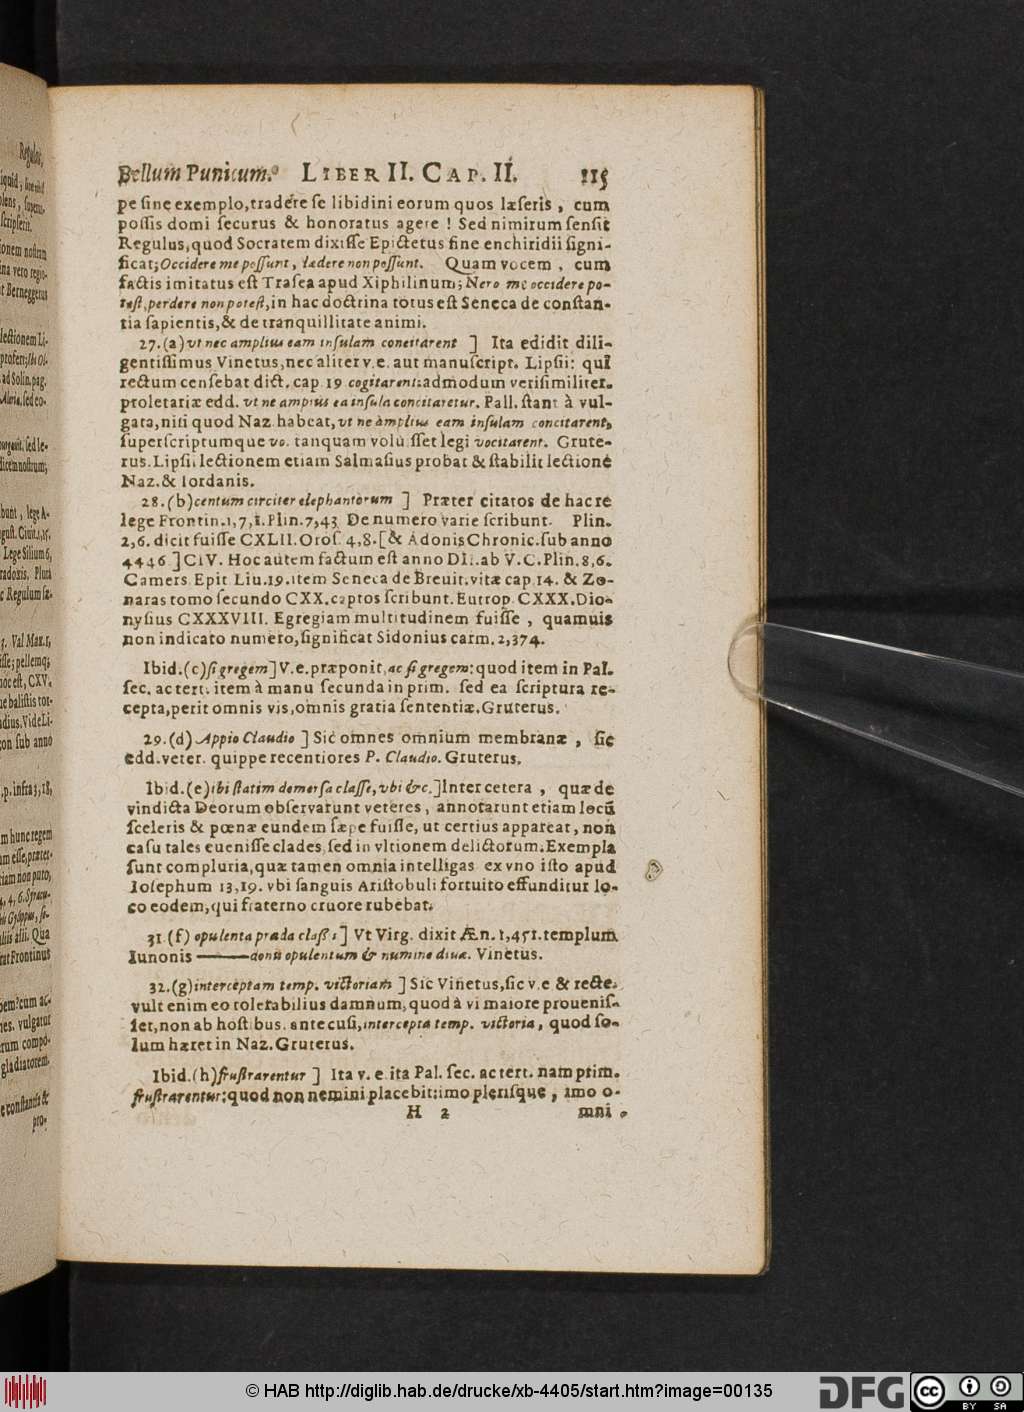 Bellum Punicum. LIBER II. CAP. II. 115
pe sine exemplo, tradere se libidini eorum quos læseris, cum
possis domi securus & honoratus agere! Sed nimirum sensit
Regulus, quod Socratem dixisse Epictetus fine enchiridii signi-
ficat; Occidere me possunt, lædere non possunt. Quam vocem, cum
factis imitatus est Trasea apud Xiphilinum; Nero me occidere po-
test, perdere non potest, in hac doctrina totus est Seneca de constan-
tia sapientis, & de tranquillitate animi.
27. (a) vt nec amplius eam insulam concitarent ] Ita edidit dili-
gentissimus Vinetus, nec aliter v. e. aut manuscript. Lipsii: qui
rectum censebat dict. cap. 19 cogitarent: admodum verisimiliter.
proletariæ edd. vt ne amplius ea insula concitaretur. Pall. stant à vul-
gata, nisi quod Naz. habeat, vt ne amplius eam insulam concitarent,
superscriptumque vo. tanquam volusset legi vocitarent. Grute-
rus. Lipsii lectionem etiam Salmasius probat & stabilit lectione
Naz. & Iordanis.
28. (b) centum circiter elephantorum ] Præter citatos de hac re
lege Frontin. 1,7,1. Plin. 7,43 De numero varie scribunt. Plin.
2,6. dicit fuisse CXLII. Oros. 4,8. [& Adonis Chronic. sub anno
4446 ] CIV. Hoc autem factum est anno DII. ab V. C. Plin. 8,6.
Camers Epit Liu. 19. item Seneca de Breuit. vitæ cap. 14. & Zo-
naras tomo secundo CXX. captos scribunt. Eutrop. CXXX. Dio-
nysius CXXXVIII. Egregiam multitudinem fuisse, quamuis
non indicato numero, significat Sidonius carm. 2,374.
Ibid. (c) si gregem ] V. e. præponit, ac si gregem: quod item in Pal.
sec. ac tert. item à manu secunda in prim. sed ea scriptura re-
cepta, perit omnis vis, omnis gratia sententiæ. Gruterus.
29. (d) Appio Claudio ] Sic omnes omnium membranæ, sic
edd. veter. quippe recentiores P. Claudio. Gruterus.
Ibid. (e) ibi statim demersa classe, vbi &c. ] Inter cetera, quæ de
vindicta Deorum observarunt veteres, annotarunt etiam locū
sceleris & pœnæ eundem sæpe fuisse, ut certius appareat, non
casu tales euenisse clades, sed in vltionem delictorum. Exempla
sunt compluria, quæ tamen omnia intelligas ex vno isto apud
Iosephum 13,19. vbi sanguis Aristobuli fortuito effunditur lo-
co eodem, qui fraterno cruore rubebat.
31. (f) opulenta præda classis ] Vt Virg. dixit Æn. 1,451. templum
Iunonis ——— donis opulentum & numine diuæ. Vinetus.
32. (g) interceptam temp. victoriam ] Sic Vinetus, sic v. e & recte.
vult enim eo tolerabilius damnum, quod à vi maiore prouenis-
set, non ab hostibus. ante cusi, intercepta temp. victoria, quod so-
lum hæret in Naz. Gruterus.
Ibid. (h) frustrarentur ] Ita v. e. ita Pal. sec. ac tert. nam prim.
frustrarentur: quod non nemini placebit: imo plerisque, imo o-
H 2 mni
© HAB http://diglib.hab.de/drucke/xb-4405/start.htm?image=00135
DFG
cc BY SA